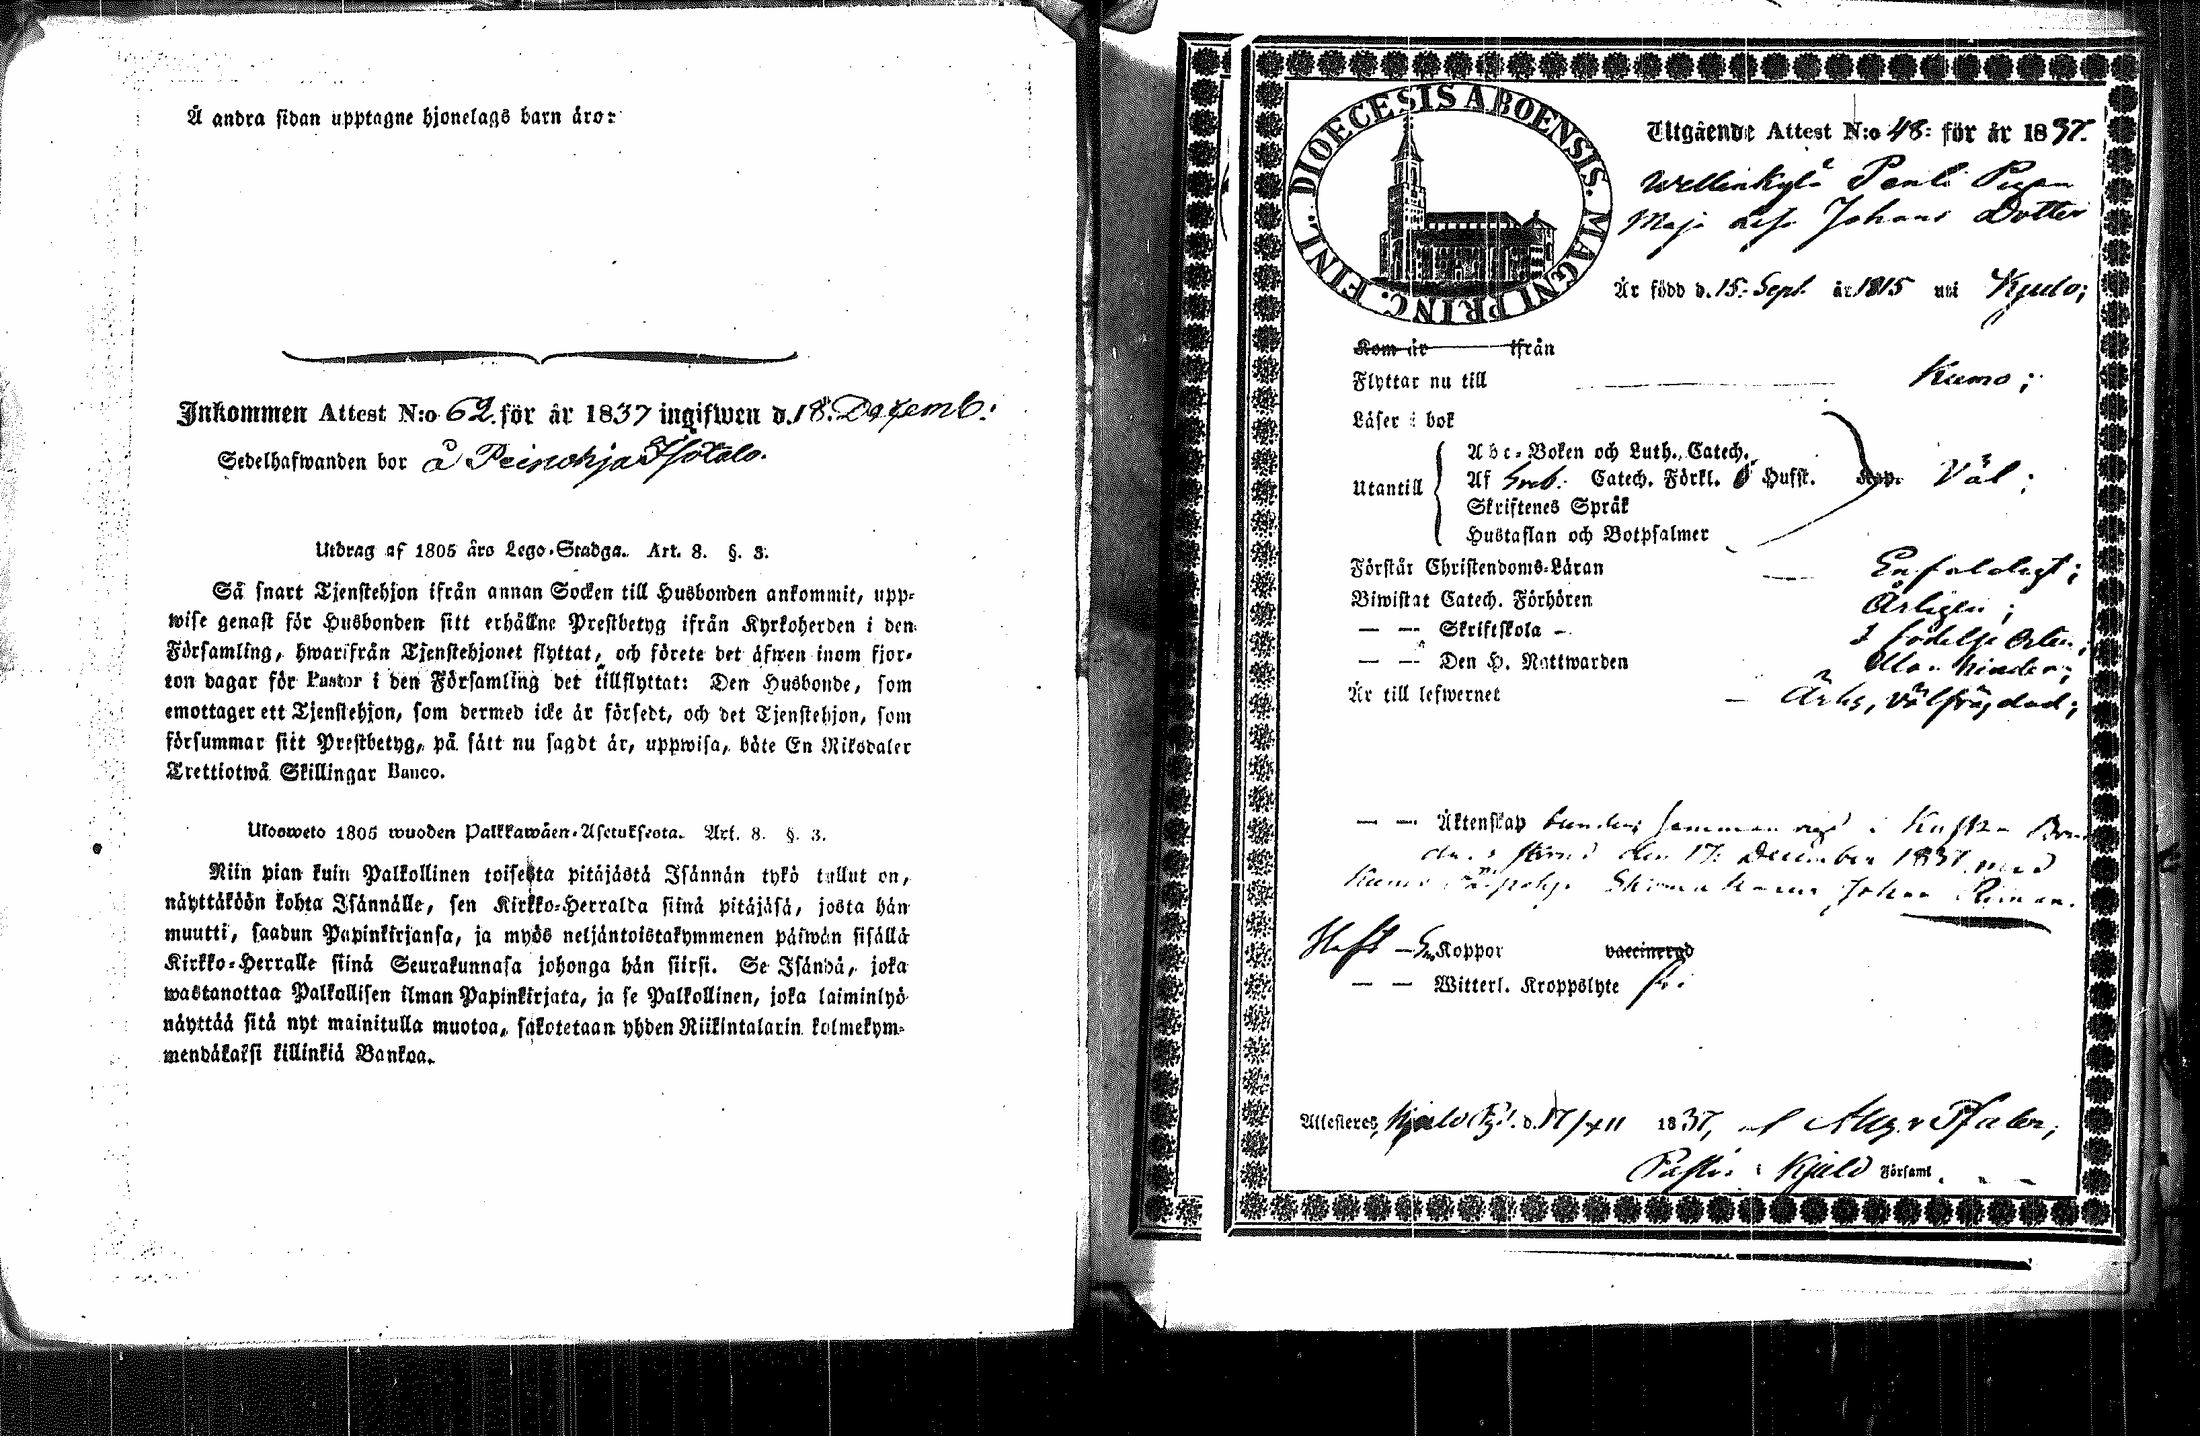 Å andra sidan upptagne hjonelags barn äro:
Inkommen Attest N:o 62. för år 1837 ingifwen d. 18. Decemb:
Sedelhafwanden bor å Peipohja
Utdrag af 1805 års Lego-Stadga. Art. 8. §. 3.
Så snart Tjenstehjon ifrån annan Socken till Husbonden ankommit, upp-
wise genast för Husbonden sitt erhållne Prestbetyg ifrån Kyrkoherden i den
Församling, hwarifrån Tjenstehjonet flyttat, och förete det äfwen inom fjor-
ton dagar för Pastor i den Församling det tillflyttat: Den Husbonde, som
emottager ett Tjenstehjon, som dermed icke är försedt, och det Tjenstehjon, som
försummar sitt Prestbetyg, på sätt nu sagdt är, uppwisa, böte En Riksdaler
Trettiotwå Skillingar Banco.
Ulosweto 1805 wuoden Palkkawäen-Asetuksesta. Art. 8. §. 3.
Niin pian kuin Palkollinen toisesta pitäjästä Isännän tykö tullut on,
näyttäköön kohta Isännälle, sen Kirkko-Herralda siinä pitäjäsä, josta hän
muutti, saadun Papinkirjansa, ja myös neljäntoistakymmenen päiwän sisällä
Kirkko-Herralle siinä Seurakunnasa johonga hän siirsi. Se Isändä, joka
wastanottaa Palkollisen ilman Papinkirjata, ja se Palkollinen, joka laiminlyö
näyttää sitä nyt mainitulla muotoa, sakotetaan yhden Riikintalarin kolmekym-
mendäkaksi killinkiä Bankoa.
DIOECESIS ABOENSIS. MAGNI PRINC. FINL.
Utgående Attest N:o 48: för år 1837.
Wellinkylä Penti Pigan
Maja Johans Dotter
Är född d. 15. Sept. år 1815 uti Kjulo;
Kom år ifrån
Flyttar nu till Kumo;
Läser i bok
Utantill
Abc-Boken och Luth. Catech.
Af Sveb. Catech. Förkl. Hufst. Väl;
Skriftenes Språk
Hustaflan och Botpsalmer
Förstår Christendoms-Läran Enfaldigt;
Biwistat Catech. Förhören Årligen;
— — Skriftskola I födelse Orten;
— — Den H. Nattwarden Utan hinder;
Är till lefwernet — Ärlig, välfrägdad;
— — Äktenskap
den 17: December 1837 med
Kumo Johan
Haft Koppor vaccinerad
— — Witterl. Kroppslyte fri
Attesteres, Kjulo d. 17/XII 1837,
Pastor i Kjulo Församl.